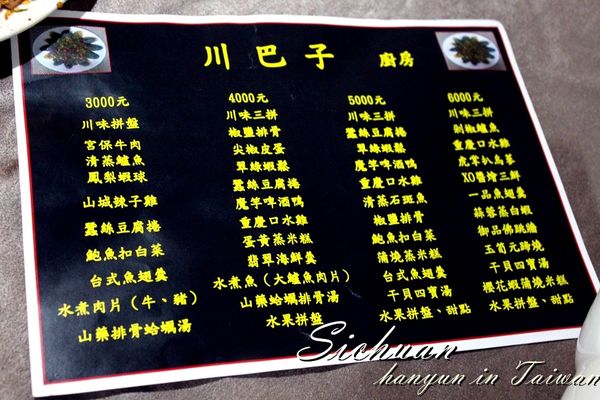 川巴子 廚房
3000元
川味拼盤
宮保牛肉
清蒸鱸魚
鳳梨蝦球
山城辣子雞
蠶絲豆腐捲
鮑魚扣白菜
台式魚翅羹
水煮肉片（牛、豬）
山藥排骨蛤蠣湯
4000元
川味三拼
椒鹽排骨
尖椒皮蛋
翠綠蝦鬆
蠶絲豆腐捲
魔芋啤酒鴨
重慶口水雞
蛋黃蒸米糕
翡翠海鮮羹
水煮魚（大鱸魚肉片）
山藥蛤蠣排骨湯
水果拼盤
5000元
川味三拼
蠶絲豆腐捲
翠綠蝦鬆
魔芋啤酒鴨
重慶口水雞
清蒸石斑魚
椒鹽排骨
鮑魚扣白菜
蒲燒蒸米糕
台式魚翅羹
干貝四寶湯
水果拼盤、甜點
6000元
川味三拼
剁椒鱸魚
重慶口水雞
虎掌扒烏蔘
XO醬燴三鮮
一品魚翅羹
蒜蓉蒸白蝦
御品佛跳牆
玉筍元蹄燒
干貝四寶湯
櫻花蝦蒲燒米糕
水果拼盤、甜點
Sichuan
hanyun in Taiwan